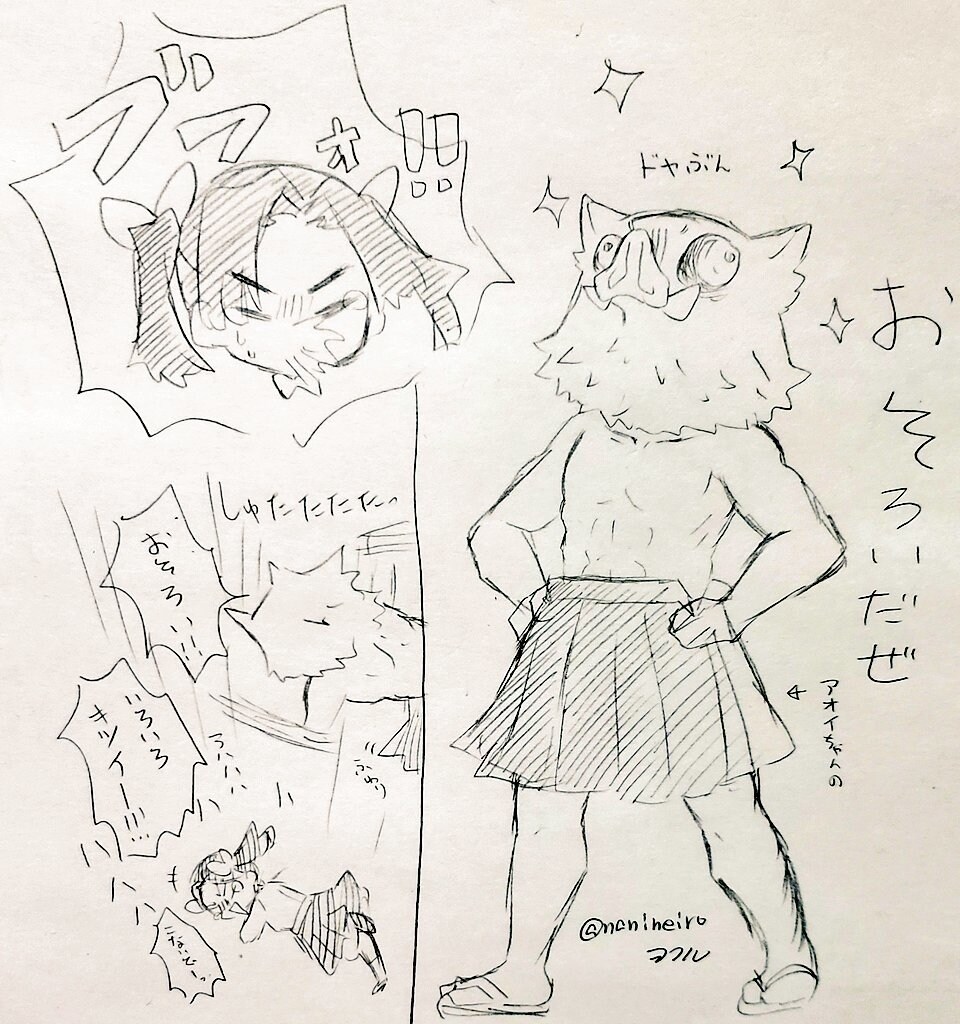 ドヤぶん
おそろいだぜ
アオイちゃんの
ブフォ!!
しゅたたたたっ
おそろい!!!
いろいろ
キツイー!!!
ハハハハ
ふわり
こないでーっ
@nanineiro